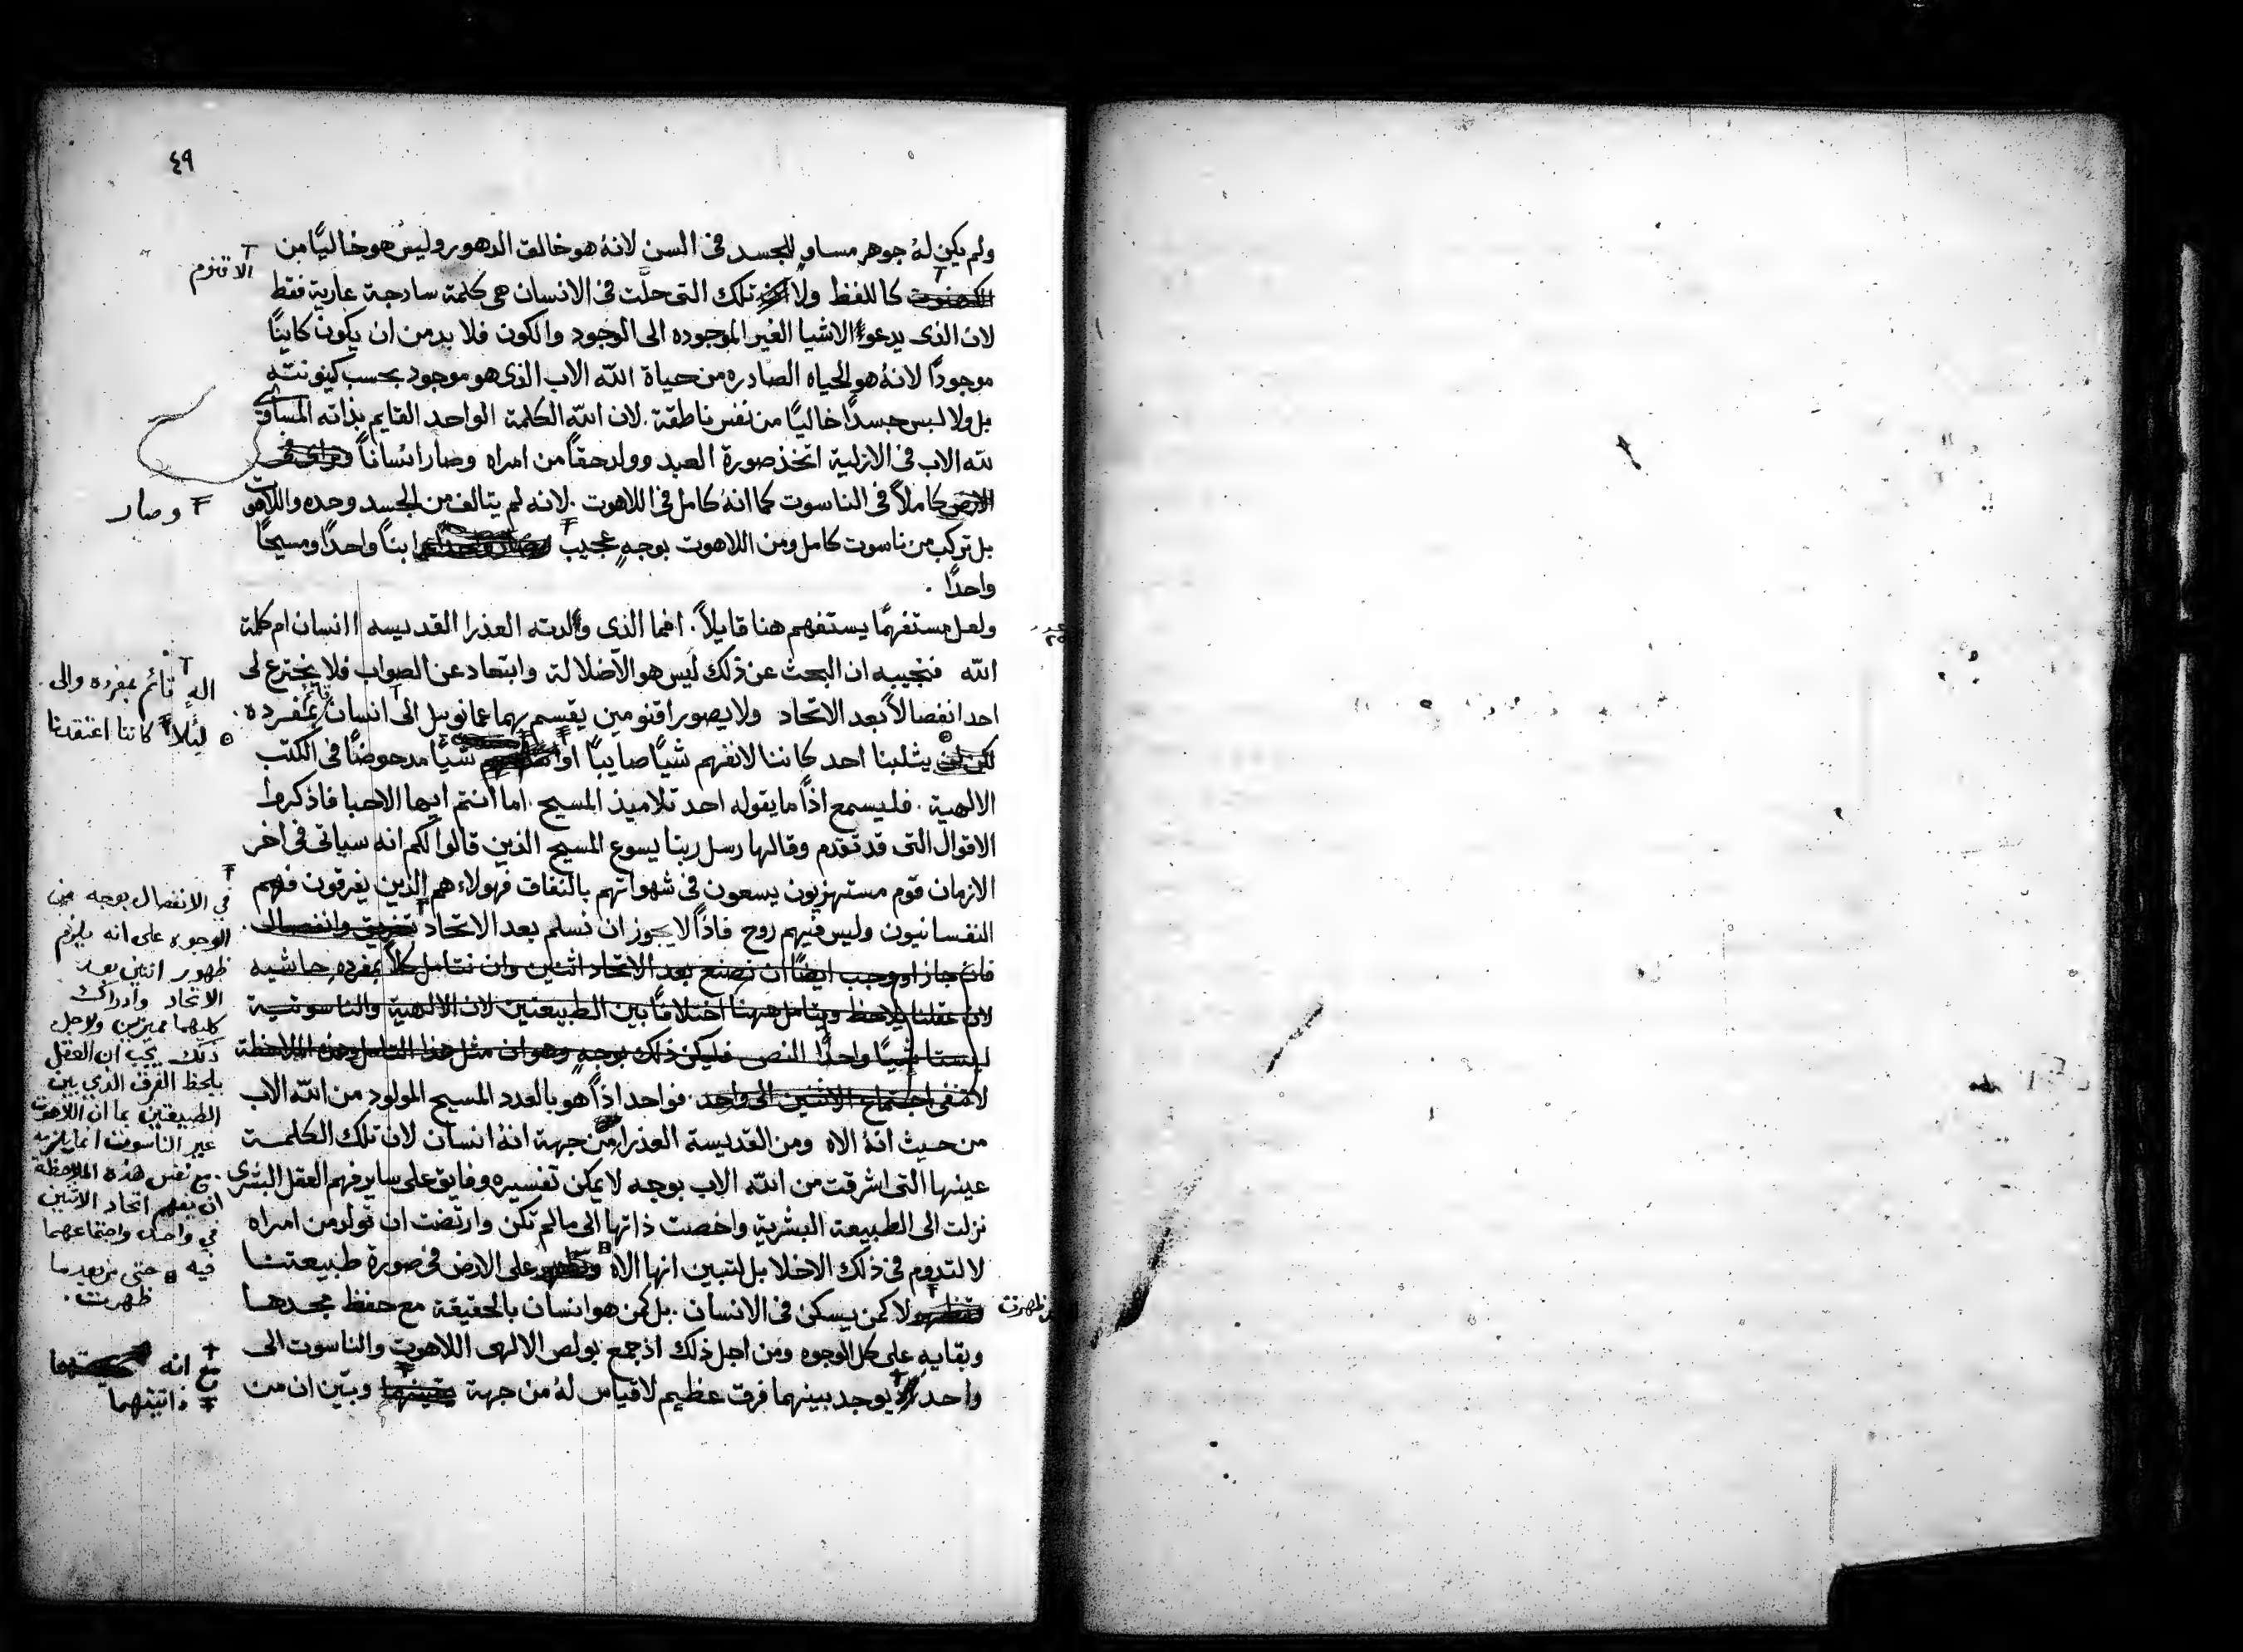 ٤٩
ولم يكن لهُ جوهر مساوٍ للجسد فى السن لانهُ هو خالق الدهور وليس هو خاليًا من
الاقنوم
كاللفظ ولا تلك التى حلّت فى الانسان هى كلمة سادجة عارية فقط
لان الذى يدعو الاشيا الغير الموجوده الى الوجود والكون فلا بد من ان يكون كاينًا
موجودًا لانهُ هو الحياه الصادره من حياة الله الاب الذى هو موجود بحسب كينونته
بل ولا لبس جسدًا خاليًا من نفس ناطقة. لان الله الكلمة الواحد القايم بذاته المساوى
لله الاب فى الازلية اتخذ صورة العبد وولد حقاً من امراه وصار انساناً
الارض كاملاً فى الناسوت كما انهُ كامل فى اللاهوت. لانه لم يتالف من الجسد وحده واللاهوت
وصار
بل تركب من ناسوت كامل ومن اللاهوت بوجهٍ عجيب ابناً واحدًا ومسيحًا
واحدًا.
ولعل مستفهمًا يستفهم هنا قايلاً. افما الذى والدته العذرا القديسه اانسان ام كلمة
الله فنجيبه ان البحث عن ذلك ليس هو الا ضلالة وابتعاد عن الصواب فلا يخترع لى
الهٍ قائم بمفرده والى
احد انفصالاً بعد الاتحاد ولا يصور اقنومين يقسم بهما عمانويل الى انسان قايم بمفرده.
ليلاً كاننا اعتقدنا
لكن لن يثلبنا احد كاننا لا نفهم شيًا صايبًا او شيًا مدحوضًا فى الكتب
الالهية. فليسمع اذًا ما يقوله احد تلاميذ المسيح. اما انتم ايها الاحبا فاذكروا
الاقوال التى قد تقدم وقالها رسل ربنا يسوع المسيح الذين قالوا لكم انه سياتى فى اخر
الازمان قوم مستهزيون يسعون فى شهواتهم بالنفاق فهولاء هم الذين يفرقون فهم
النفسانيون وليس فيهم روح فاذًا لا يجوز ان نسلم بعد الاتحاد تفريق وانفصالى.
فان جاز او وجب ايضًا ان نصنع بعد الاتحاد اثنين وان نتامل كلاً بمفرده حاشيه
لان عقلنا يلاحظ ويتامل ههنا اختلافًا بين الطبيعتين لان الالهية والناسوتية
ليستا شيًا واحدًا النص فليكن ذلك بوجهٍ وهو ان مثل هذا التامل وهذه الملاحظة
لا تنفى اجتماع الاثنين الى واحد. فواحد اذًا هو بالعدد المسيح المولود من الله الاب
من حيث انهُ الاه ومن القديسة العذرا من جهة انهُ انسان لان تلك الكلمــة
عينها التى اشرقت من الله الاب بوجه لا يمكن تفسيره وفايق على ساير فهم العقل البشرى
نزلت الى الطبيعة البشرية واخصت ذاتها الى ما لم تكن وارتضت ان تولد من امراه
لا لتدوم فى ذلك الاخلا بل لتبين انها الاه على الارض فى صورة طبيعتنــا
ظهرت
لا كمن يسكن فى الانسان. بل كمن هو انسان بالحقيقة مع حفظ مجدهــا
وبقايه على كل الوجوه ومن اجل ذلك اذ جمع بولص الالهى اللاهوت والناسوت الى
واحد يوجد بينهما فرق عظيم لا قياس لهُ من جهة وبيّن ان من
في الانفصال بوجه من
الوجوه على انه يلزم
ظهور اثنين بعد
الاتحاد وادراك
كليهما مميزين ولاجل
ذلك يجب ان العقل
يلحظ الفرق الذي بين
الطبيعتين بما ان اللاهوت
غير الناسوت انما يلزمه
مع نفس هذه الملاحظة
ان يفهم اتحاد الاثنين
في واحد واجتماعهما
فيه
حتى من بعد ما
ظهرت.
مع انه
ذاتيتهما